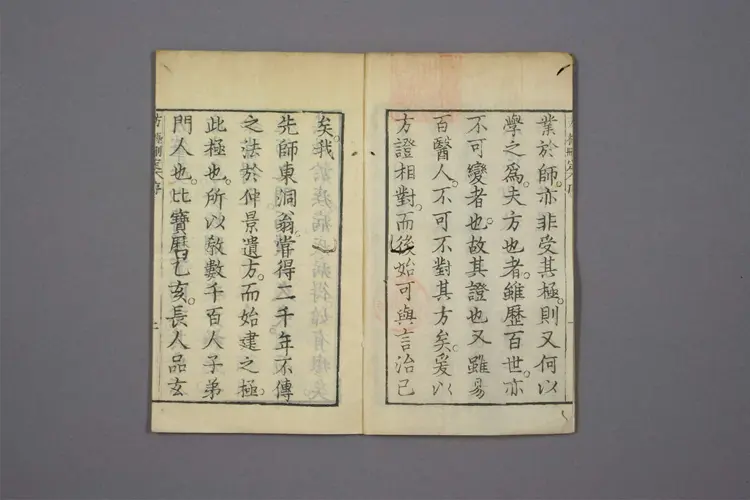 業於師。亦非受其極。則又何以
學之爲。夫方也者。雖歷百世。亦
不可變者也。故其證也又雖易
百醫人。不可不對其方矣。爰以
方證相對。而後始可與言治已
矣。我
先師東洞翁。嘗得二千年不傳
之法於仲景遺方。而始建之極。
此極也。所以敎數千百人子弟
門人也。比寶曆乙亥。長人品玄